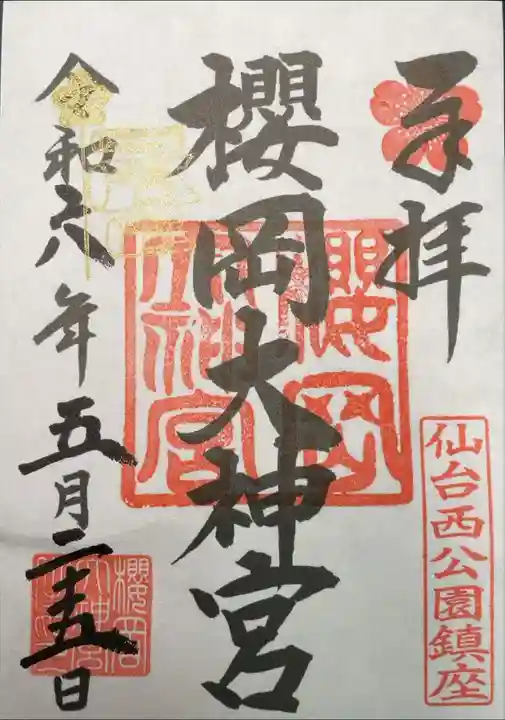 奉拝
櫻岡大神宮
仙台西公園鎮座
令和六年五月二十五日
櫻岡大神宮